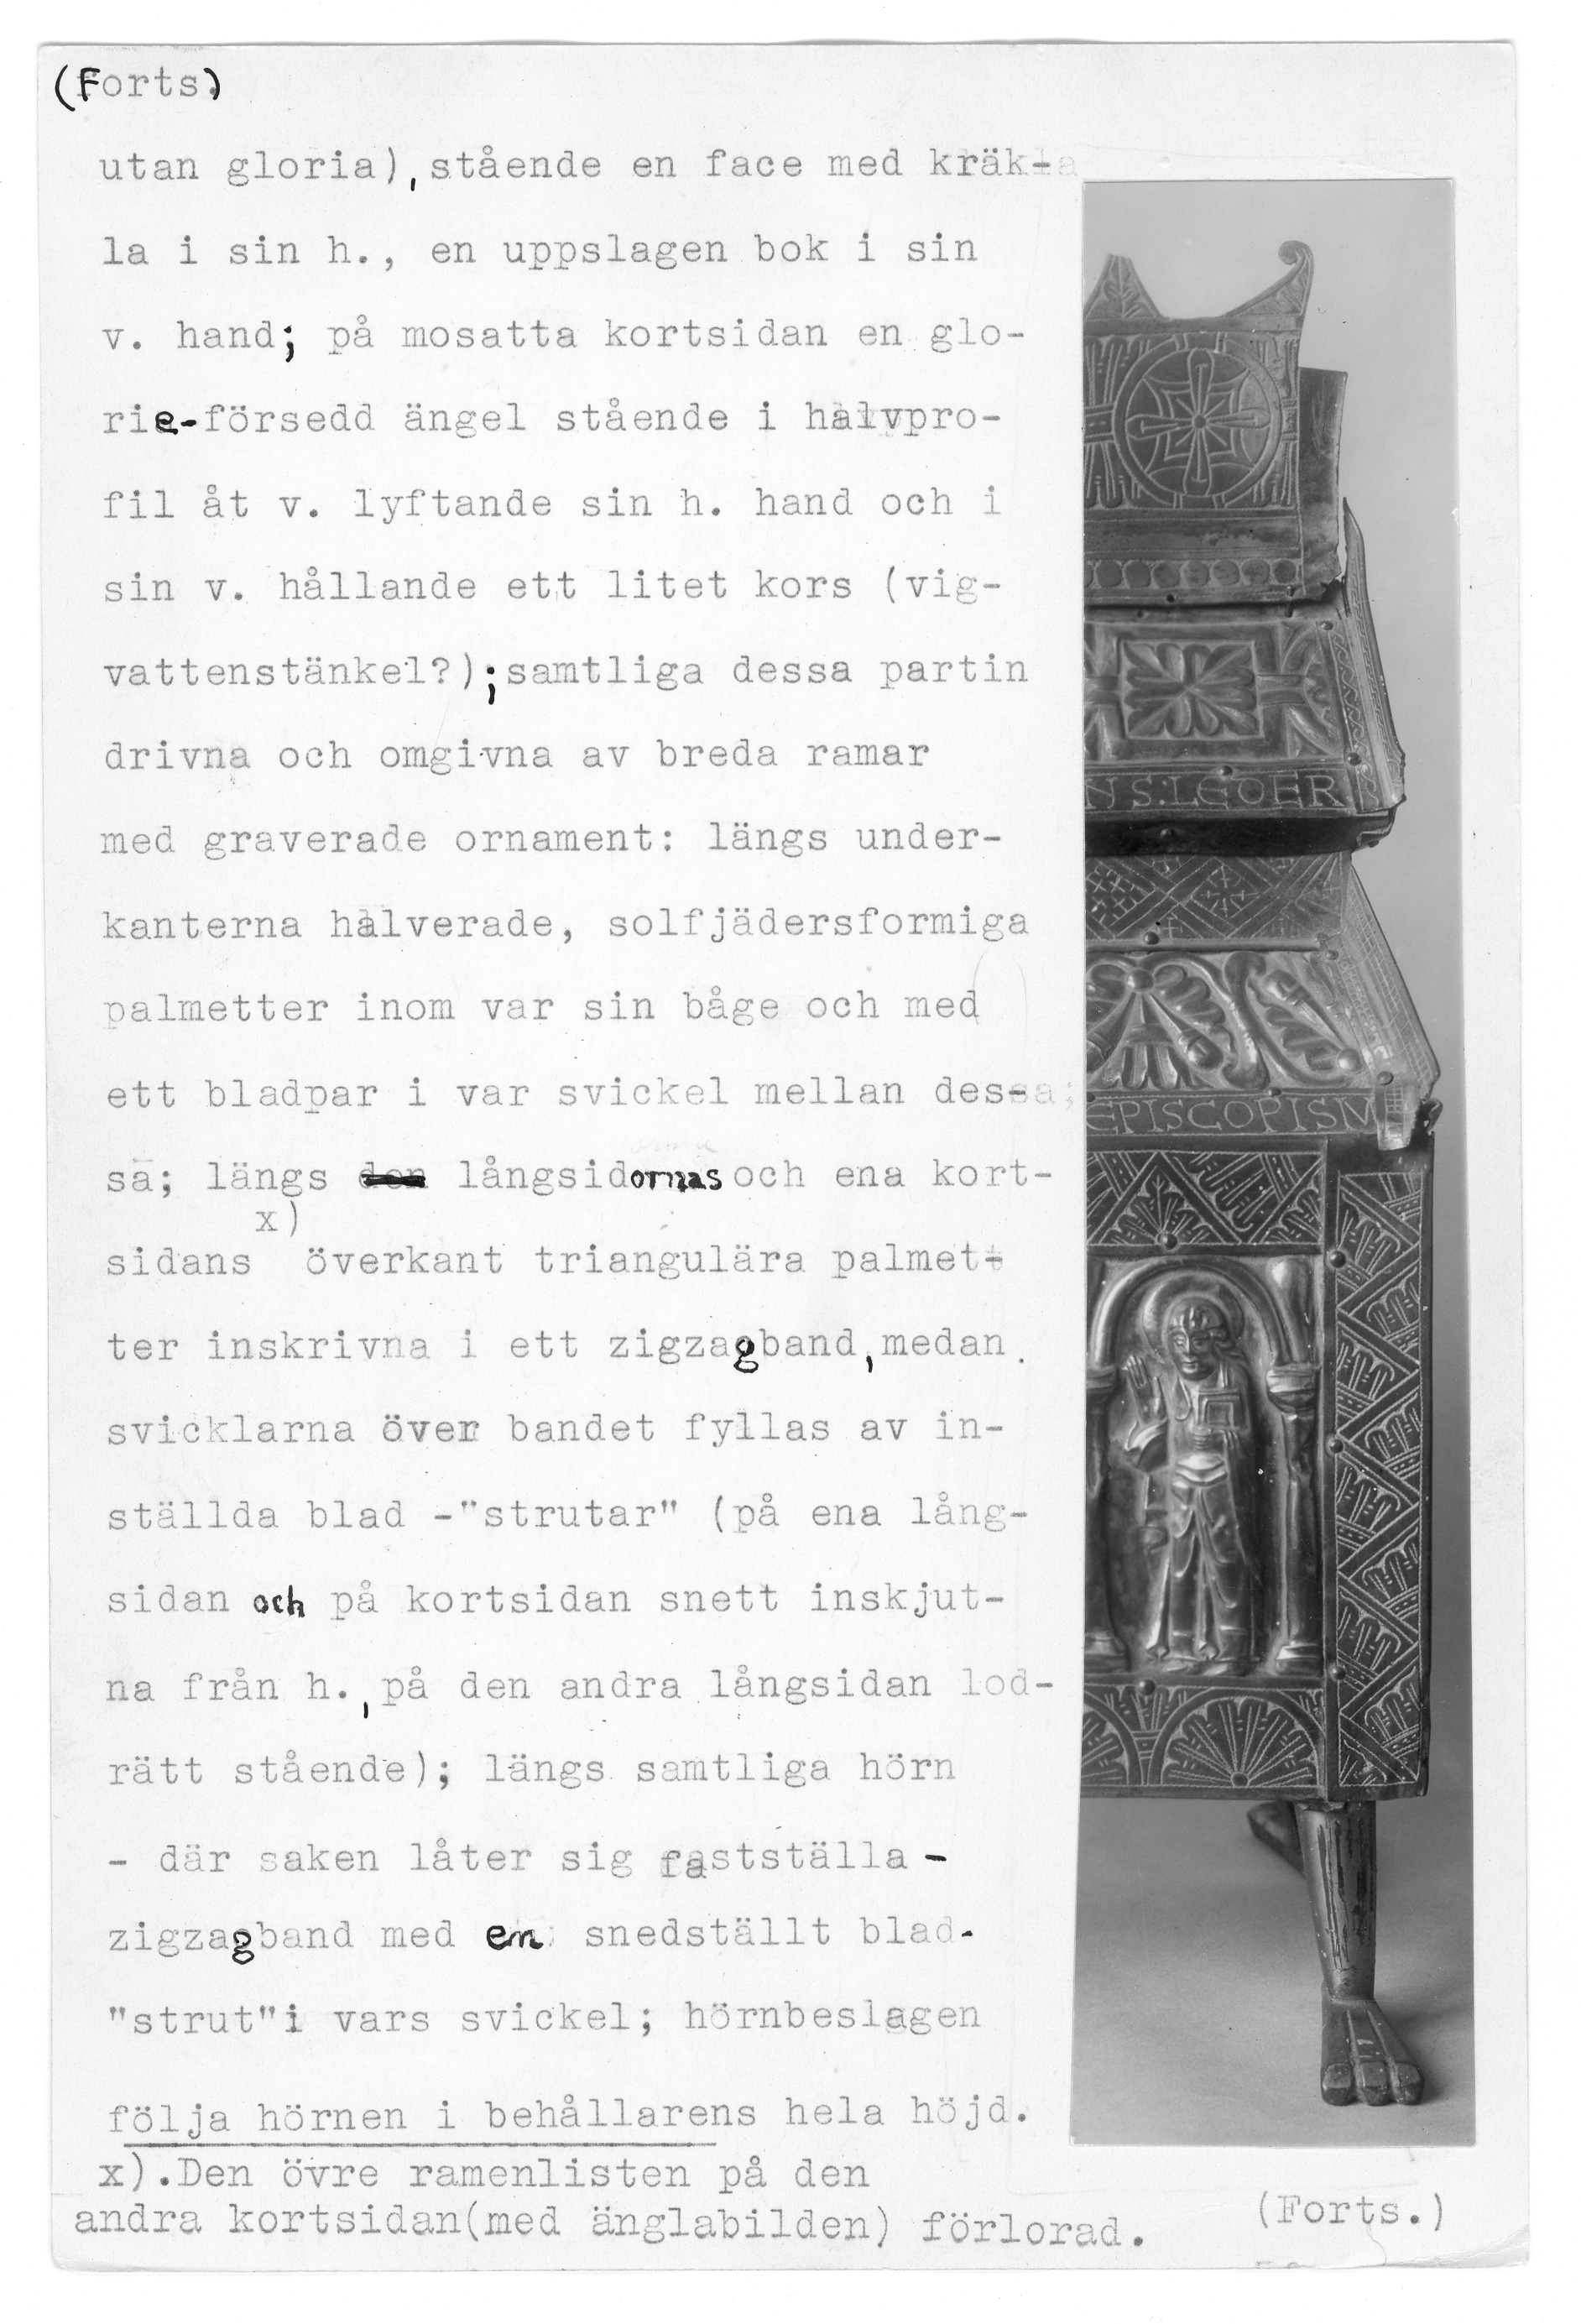 (Forts.)
utan gloria), stående en face med kräk-
la i sin h., en uppslagen bok i sin
v. hand; på mosatta kortsidan en glo-
rie-försedd ängel stående i halvpro-
fil åt v. lyftande sin h. hand och i
sin v. hållande ett litet kors (vig-
vattenstänkel?); samtliga dessa partin
drivna och omgivna av breda ramar
med graverade ornament: längs under-
kanterna halverade, solfjädersformiga
palmetter inom var sin båge och med
ett bladpar i var svickel mellan des-
sa; längs den långsidornas och ena kort-
x)
sidans överkant triangulära palmet-
ter inskrivna i ett zigzagband, medan
svicklarna över bandet fyllas av in-
ställda blad -"strutar" (på ena lång-
sidan och på kortsidan snett inskjut-
na från h., på den andra långsidan lod-
rätt stående); längs samtliga hörn
- där saken låter sig fastställa -
zigzagband med en snedställt blad-
"strut" i vars svickel; hörnbeslagen
följa hörnen i behållarens hela höjd.
x).Den övre ramenlisten på den
andra kortsidan(med änglabilden) förlorad.
(Forts.)
NS:LEOER
EPISCOPISM